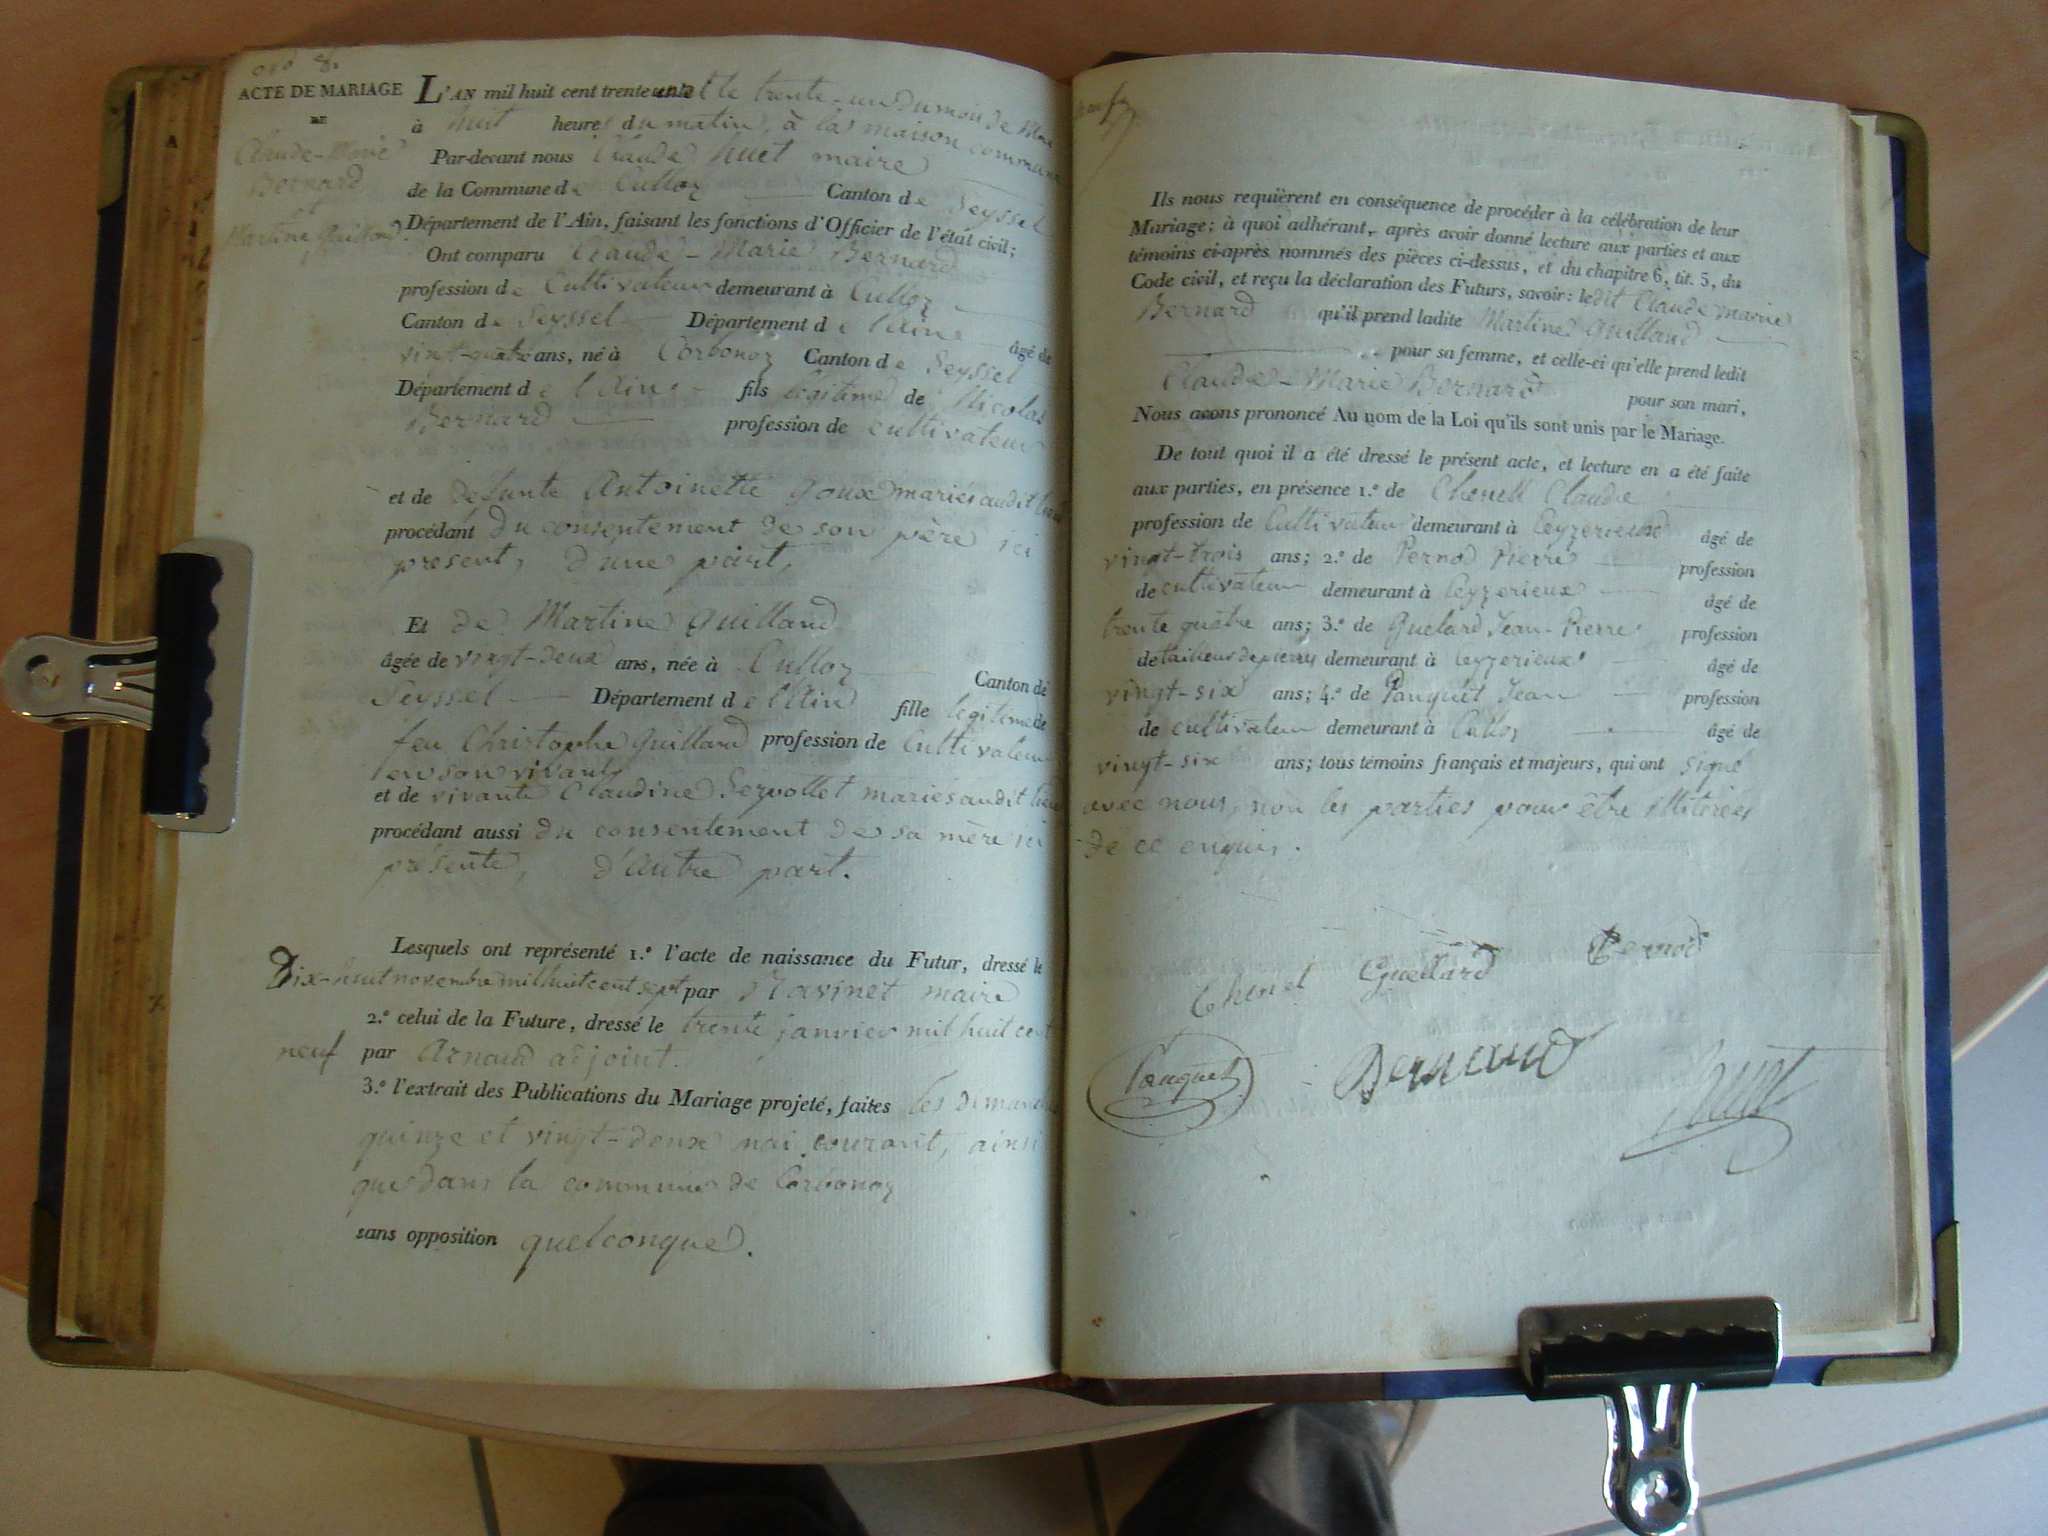 n.° 8.
ACTE DE MARIAGE
DE
Claude-Marie
Bernard
et
Martine Guilland
L'AN mil huit cent trente un et le trente-un du mois de Mai
à huit heures du matin, à la maison commune
Par-devant nous Claude huet maire
de la Commune de Culloz Canton de Seyssel
Département de l'Ain, faisant les fonctions d'Officier de l'état civil;
Ont comparu Claude-Marie Bernard
profession de Cultivateur demeurant à Culloz
Canton de Seyssel Département de l'Ain âgé de
vingt-quatre ans, né à Corbonoz Canton de Seyssel
Département de l'Ain fils légitime de Nicolas
Bernard profession de cultivateur
et de defunte Antoinette Goux mariés audit lieu
procédant du consentement de son père ici
present, d'une part,
Et de Martine Guilland
âgée de vingt-deux ans, née à Culloz Canton de
Seyssel Département de l'Ain fille legitime de
feu Christophe Guilland profession de Cultivateur
en son vivant
et de vivante Claudine Servollet mariés audit lieu
procédant aussi du consentement de sa mère ici
présente, d'autre part.
Lesquels ont représenté 1.° l'acte de naissance du Futur, dressé le
Dix-huit novembre mil huit cent sept par Ravinet maire
2.° celui de la Future, dressé le trente janvier mil huit cent
neuf par Arnaud adjoint.
3.° l'extrait des Publications du Mariage projeté, faites les dimanches
quinze et vingt-deux mai courant, ainsi
que dans la commune de Corbonoz
sans opposition quelconque.
neuf
Ils nous requièrent en conséquence de procéder à la célébration de leur
Mariage; à quoi adhérant, après avoir donné lecture aux parties et aux
témoins ci-après nommés des pièces ci-dessus, et du chapitre 6, tit. 5, du
Code civil, et reçu la déclaration des Futurs, savoir: ledit Claude marie
Bernard qu'il prend ladite Martine Guilland
pour sa femme, et celle-ci qu'elle prend ledit
Claude-Marie Bernard pour son mari,
Nous avons prononcé Au nom de la Loi qu'ils sont unis par le Mariage.
De tout quoi il a été dressé le présent acte, et lecture en a été faite
aux parties, en présence 1.° de Chenell Claude
profession de Cultivateur demeurant à Ceyzerieux âgé de
vingt-trois ans; 2.° de Pernod Pierre profession
de cultivateur demeurant à Ceyzerieux âgé de
trente quatre ans; 3.° de Guelard Jean-Pierre profession
de tailleur de pierres demeurant à Ceyzerieux âgé de
vingt-six ans; 4.° de Pauquet Jean profession
de cultivateur demeurant à Culloz âgé de
vingt-six ans; tous témoins français et majeurs, qui ont signé
avec nous, non les parties pour être illitérées
de ce enquis.
Chenel Guellard Pernod
Pauquet Bernard huet